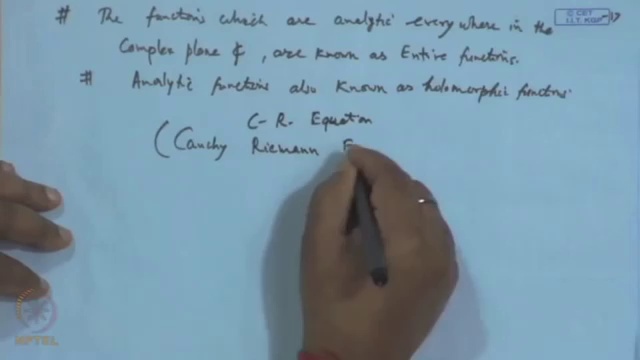 # The functions which are analytic everywhere in the
Complex plane ₵, are known as Entire functions.
# Analytic functions also known as holomorphic functions.
C-R. Equation
(Cauchy Riemann E
© CET
I.I.T. KGP
NPTEL